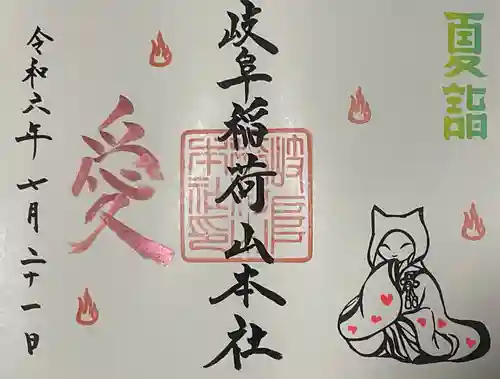 夏詣
岐阜稲荷山本社
愛
令和六年七月二十一日
岐阜稲荷山本社印